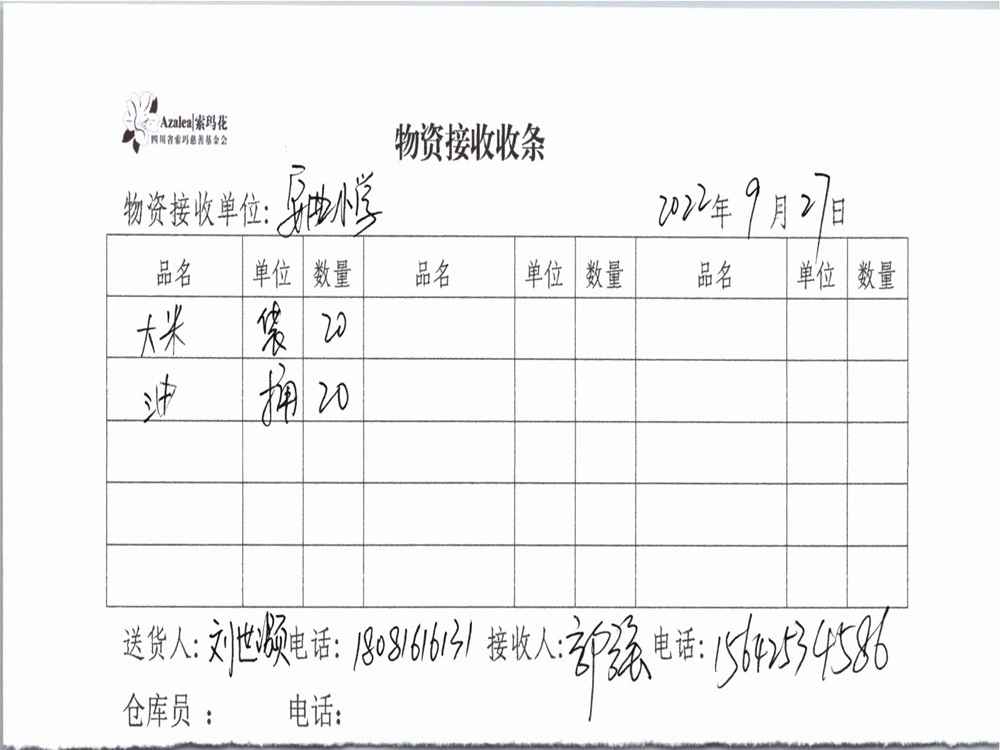 Azalea|索玛花
四川省索玛慈善基金会
物资接收收条
物资接收单位: 小学 2022年9月27日
品名 单位 数量 品名 单位 数量 品名 单位 数量
大米 袋 20
油 桶 20
送货人: 刘世灏 电话: 18081616131 接收人: 郭强 电话: 15642534586
仓库员 : 电话: